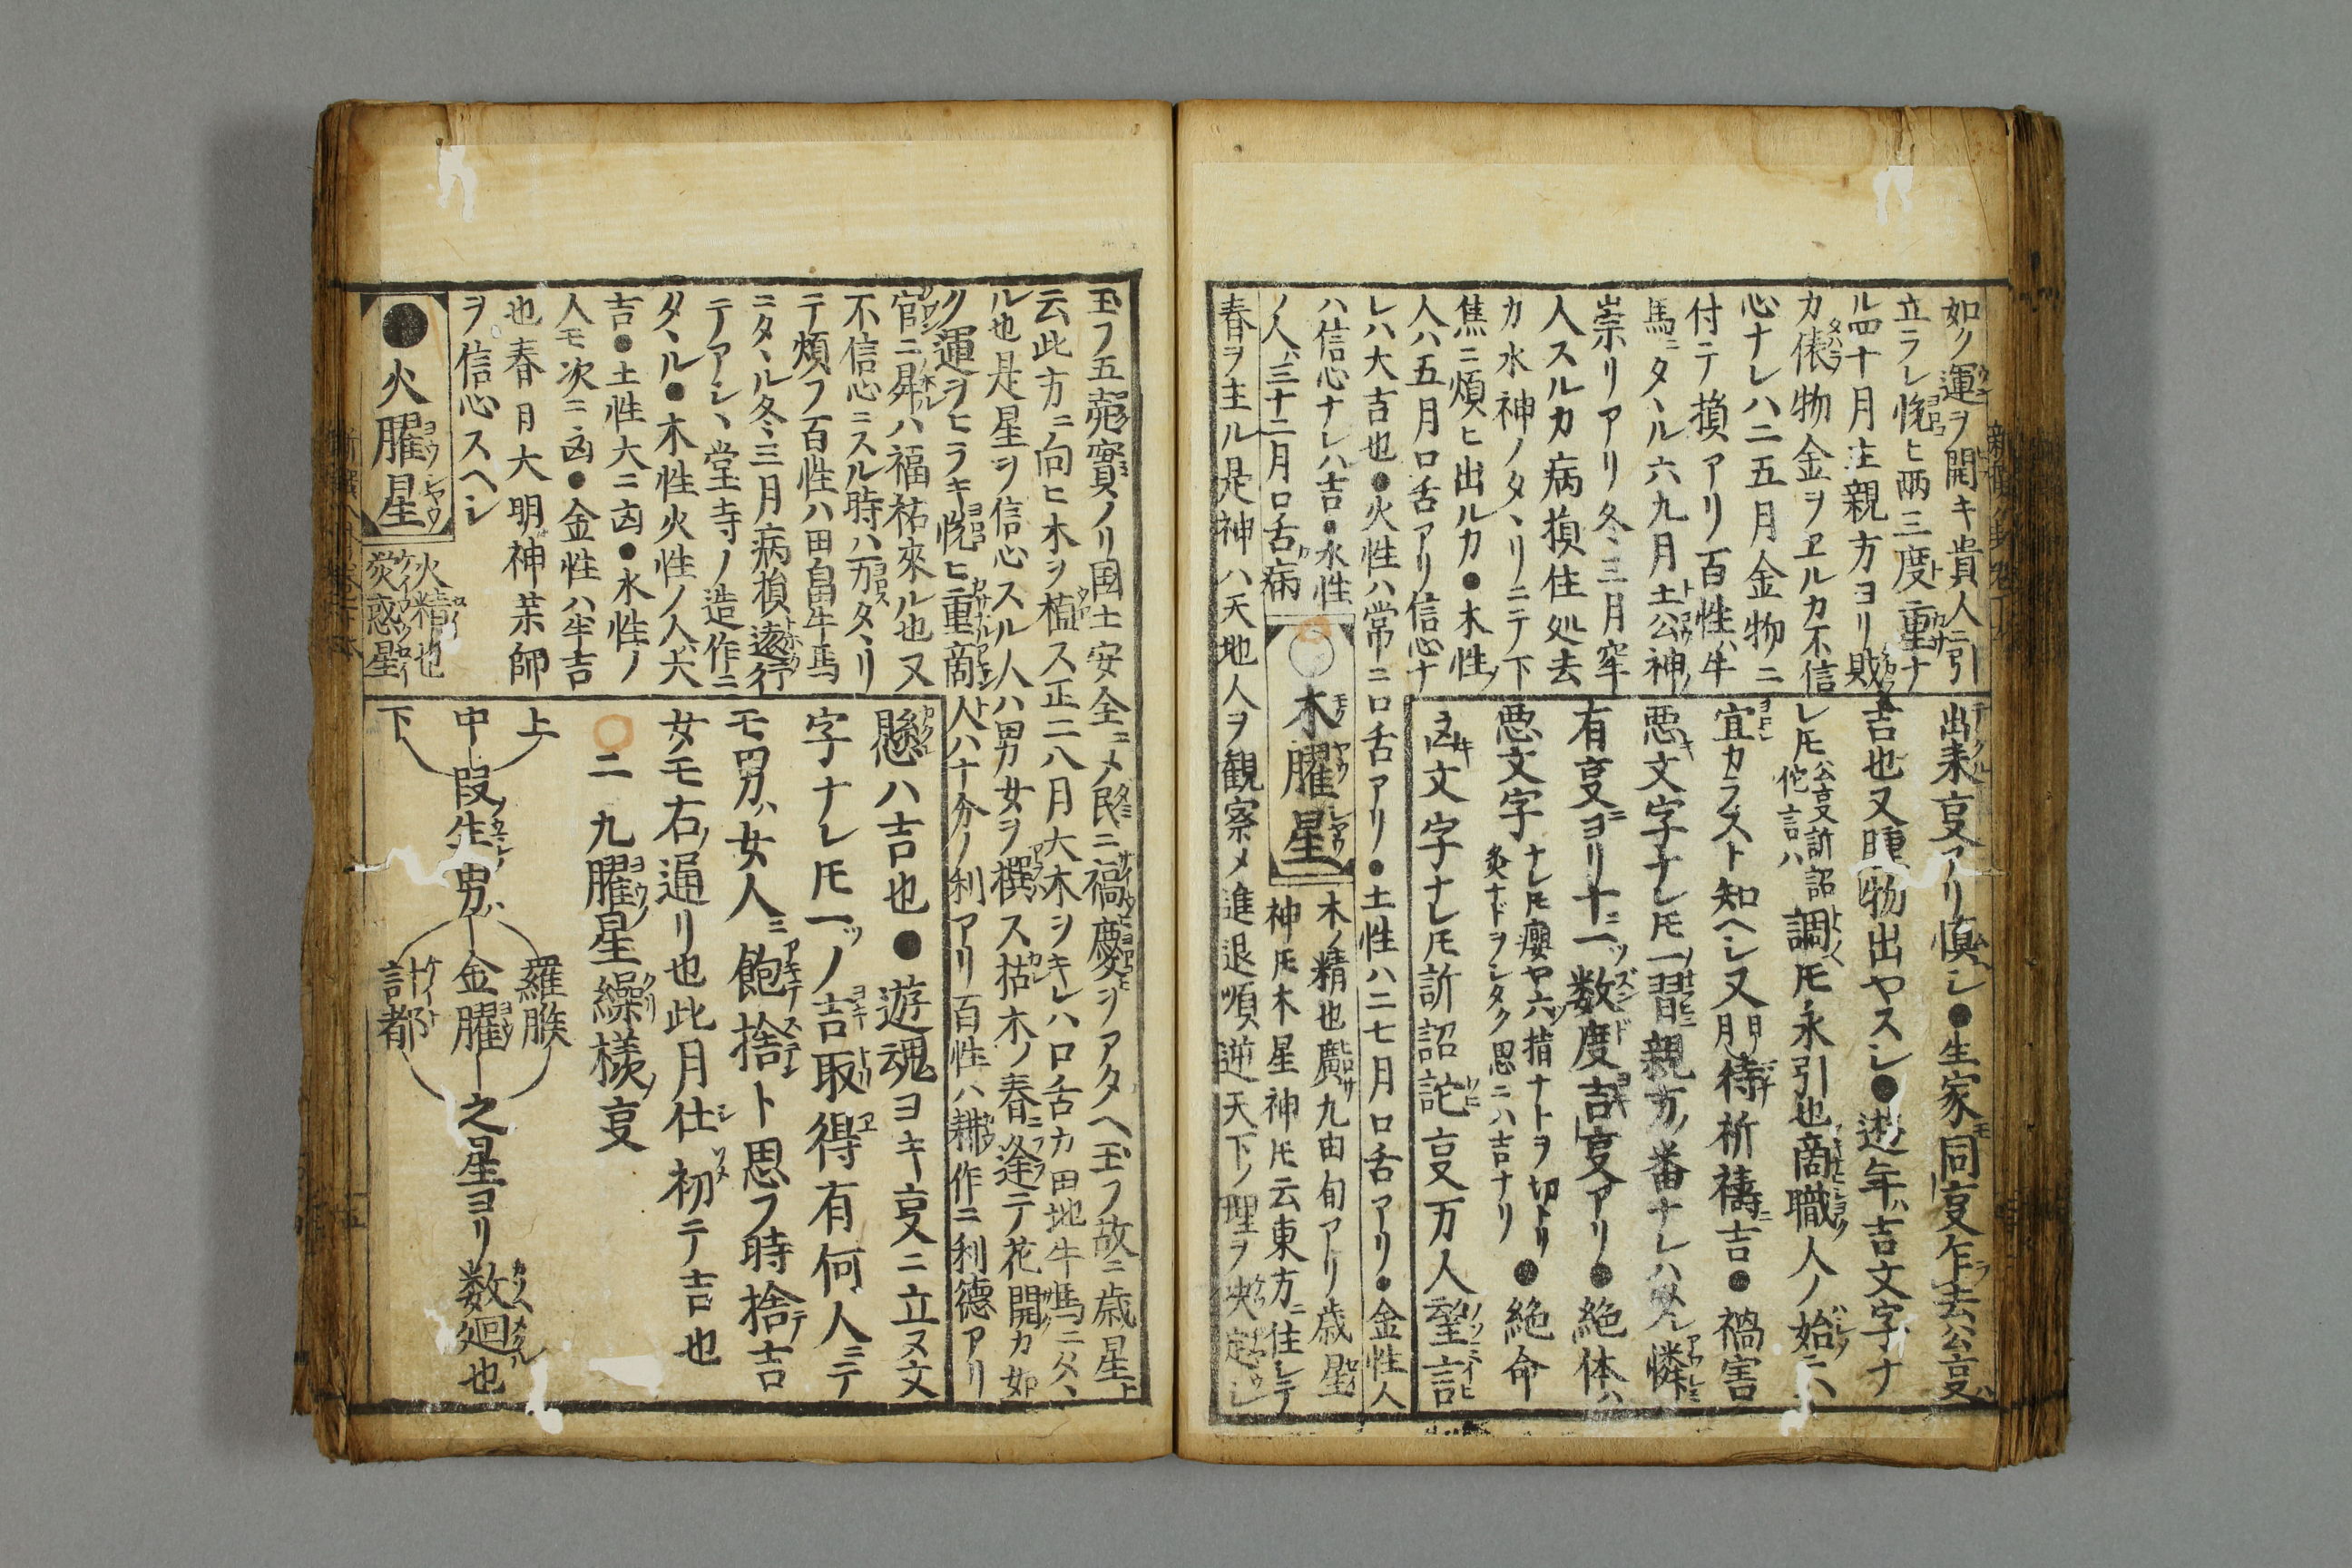 如ク運ヲ開キ貴人ニ引
立ラレ悦ヒ両三度重ナ
ル四十月主親方ヨリ財
カ俵物金ヲヱルカ不信
心ナレハ二五月金物ニ
付テ損アリ百性ハ牛
馬ニタヽル六九月土公神ノ
崇リアリ冬三月穼
人スルカ病損住処去
カ水神ノタヽリニテ下
焦ニ煩ヒ出ルカ●木性ノ
人ハ五月口舌アリ信心ナ
レハ大吉也●火性ハ常ニ口舌アリ●土性ハ二七月口舌アリ●金性人
ハ信心ナレハ吉●水性
ノ人ハ三十二月口舌病
木曜星
木ノ精也廣九由旬アリ歳星
神𪜈木星神𪜈云東方ニ住シテ
春ヲ主ル是神ハ天地人ヲ観察メ進退順逆天下ノ理ヲ决定シ
出来叓アリ慎シ●生家モ同叓乍去公叓ハ
吉也又腫物出ヤスシ●遊年ハ吉文字ナ
レ𪜈公叓訴詔佗言ハ調𪜈永引也商職人ノ始ニハ
宜カラスト知ヘシ又日月待祈禱ニ吉●禍害
悪文字ナレ𪜈一習親方ノ番ナレハ又憐
有叓ヨリ十ニ一ツ数度吉叓アリ●絶体ハ
悪文字ナレ𪜈癭ヤ六ツ指ナトヲ切トリ灸ナドヲシタク思ニハ吉ナリ●絶命
凶文字ナレ𪜈訴詔詫叓万人望言
玉フ五菀實ノリ国土安全ニメ民ニ福慶ヲアタヘ玉フ故ニ歳星ト
云此方ニ向ヒ木ヲ植ス正二八月大木ヲキレハ口舌カ田地牛馬ニタヽ
ル也是星ヲ信心スル人ハ男女ヲ撰ス枯木ノ春ニ逢テ花開カ如
ク運ヲヒラキ悦ヒ重商人ハ十分ノ利アリ百性ハ耕作ニ利徳アリ
官ニ昇ハ福祐來ル也又
不信心ニスル時ハ万タヽリ
テ煩フ百性ハ田畠牛馬
ニタヽル冬三月病損遠行
テアシヽ堂寺ノ造作ニ
タヽル●木性火性ノ人ハ大
吉●土性大ニ凶●水性ノ
人モ次ニ凶●金性ハ半吉
也春月大明神薬師
ヲ信心スヘシ
●火曜星
火精也
熒惑星
懸ハ吉也●遊魂ヨキ叓ニ立ヌ文
字ナレ𪜈一ツノ吉取得有何人ニテ
モ男ハ女人ニ飽捨ト思フ時捨テ吉
女モ右ノ通リ也此月仕初テ吉也
○二 九曜星繰様ノ叓
上
中 叚ノ生男ハ
下
羅睺
金曜
計都
之星ヨリ数廻也